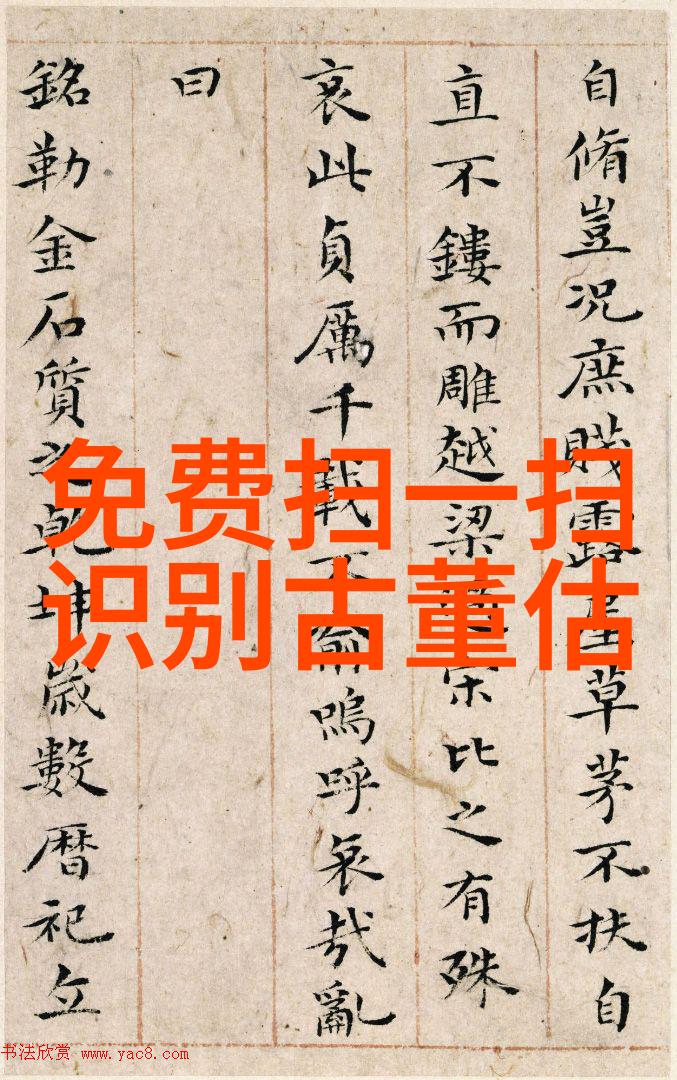 自脩豈况庶賤露屋草茅不扶自
直不鏤而雕越梁宋比之有殊
哀此貞厲千載不渝嗚呼哀哉亂
曰
銘勒金石質之乾坤歲數曆祀立
免费扫一扫
识别古董估
书法欣赏 www.yac8.com